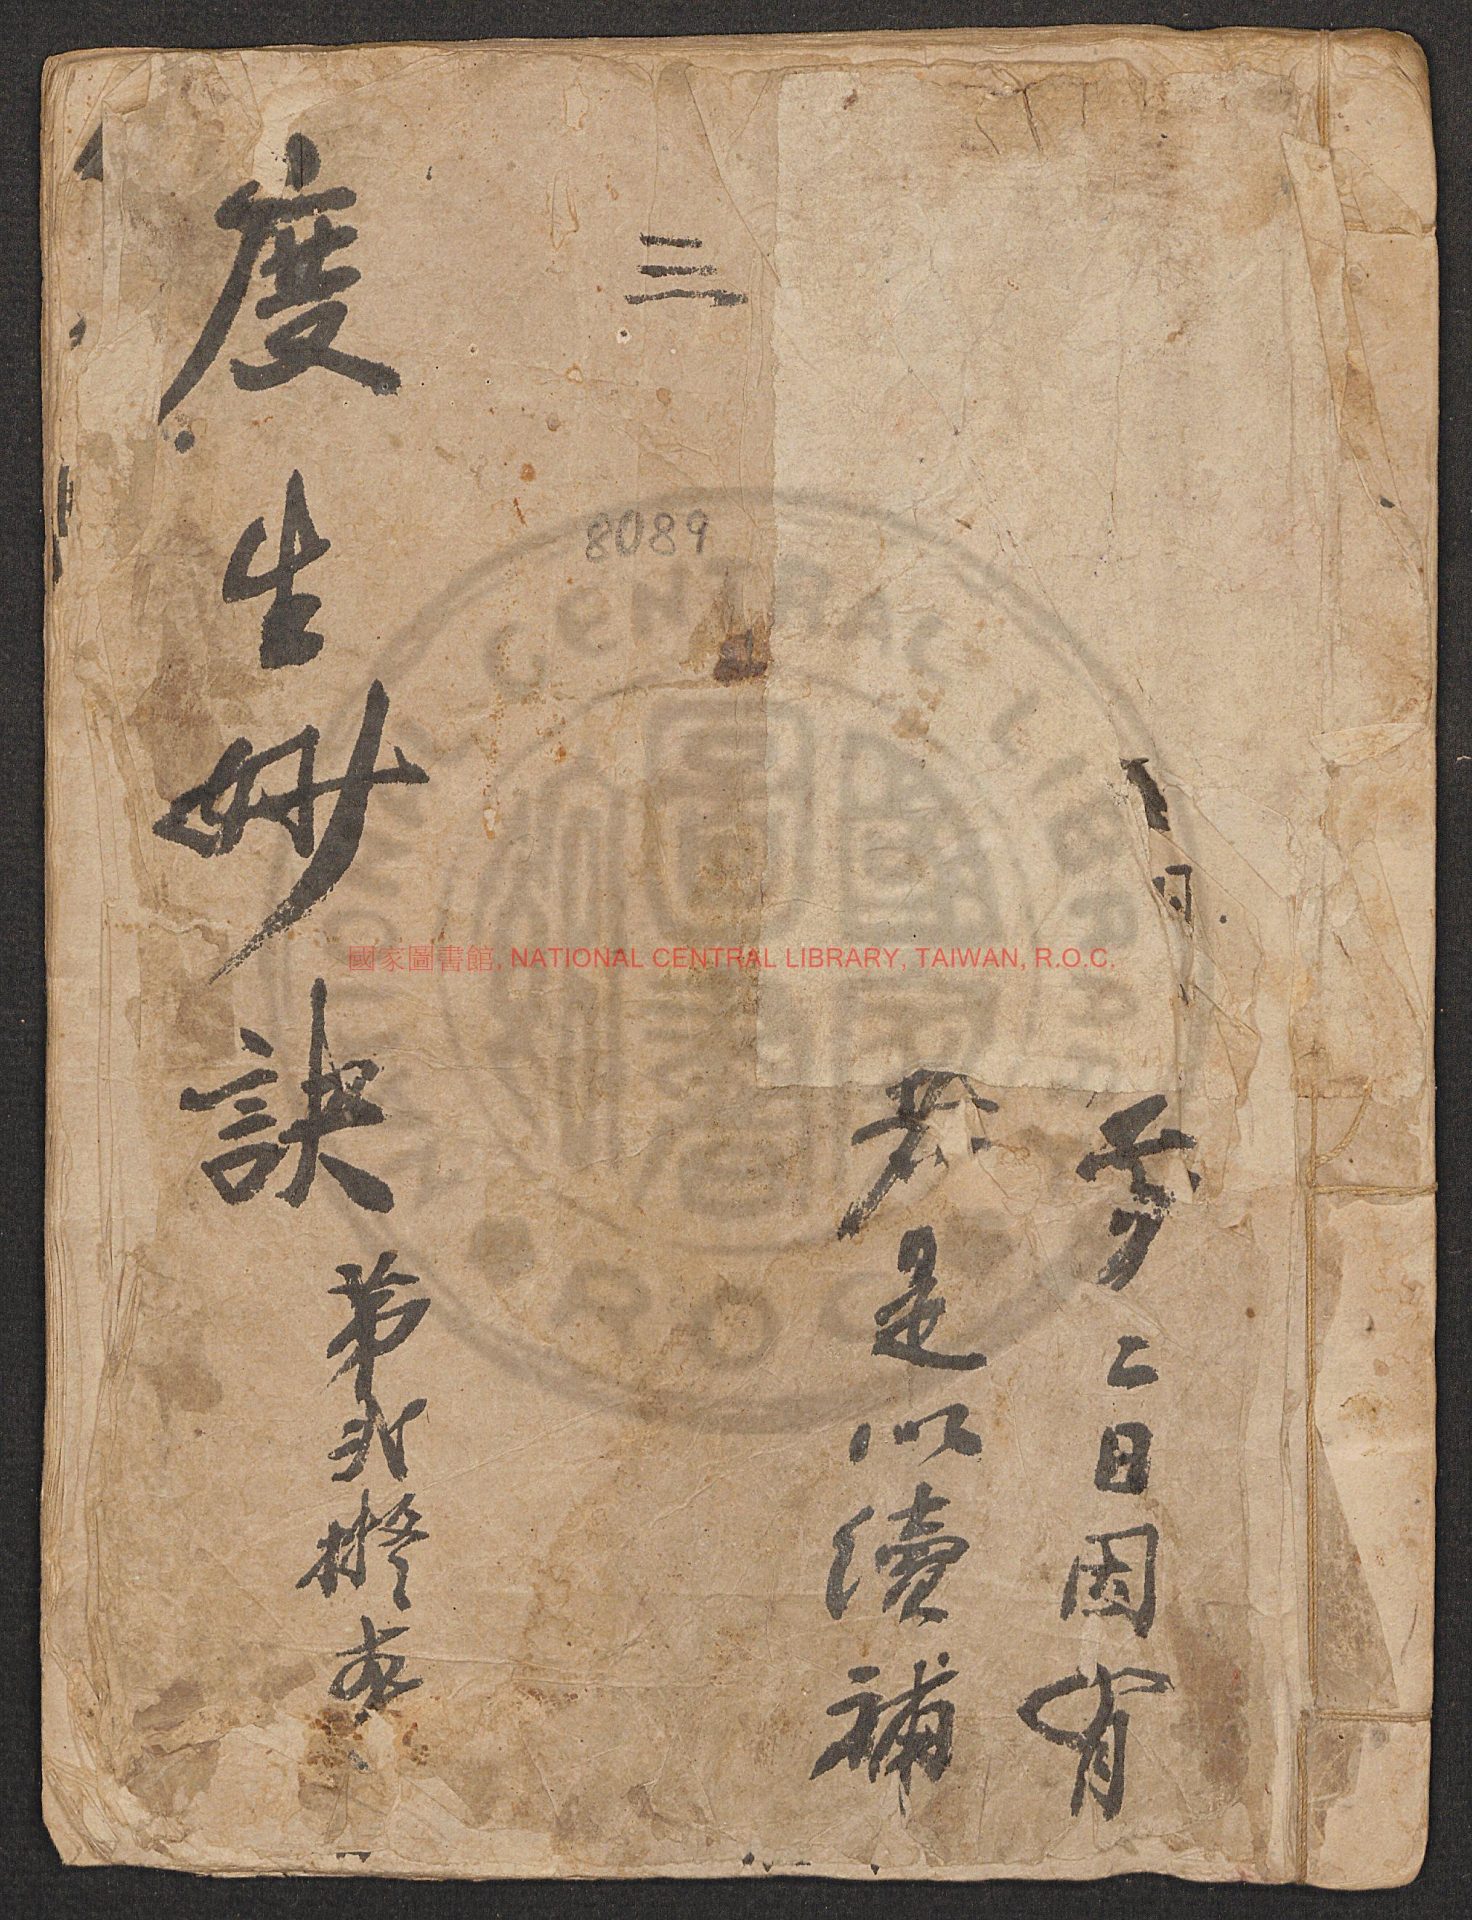 日
二日因有
是以續補
三
8089
度生妙訣
第貳
本
國家圖書館, NATIONAL CENTRAL LIBRARY, TAIWAN, R.O.C.
CENTRAL LIBRARY
R O C